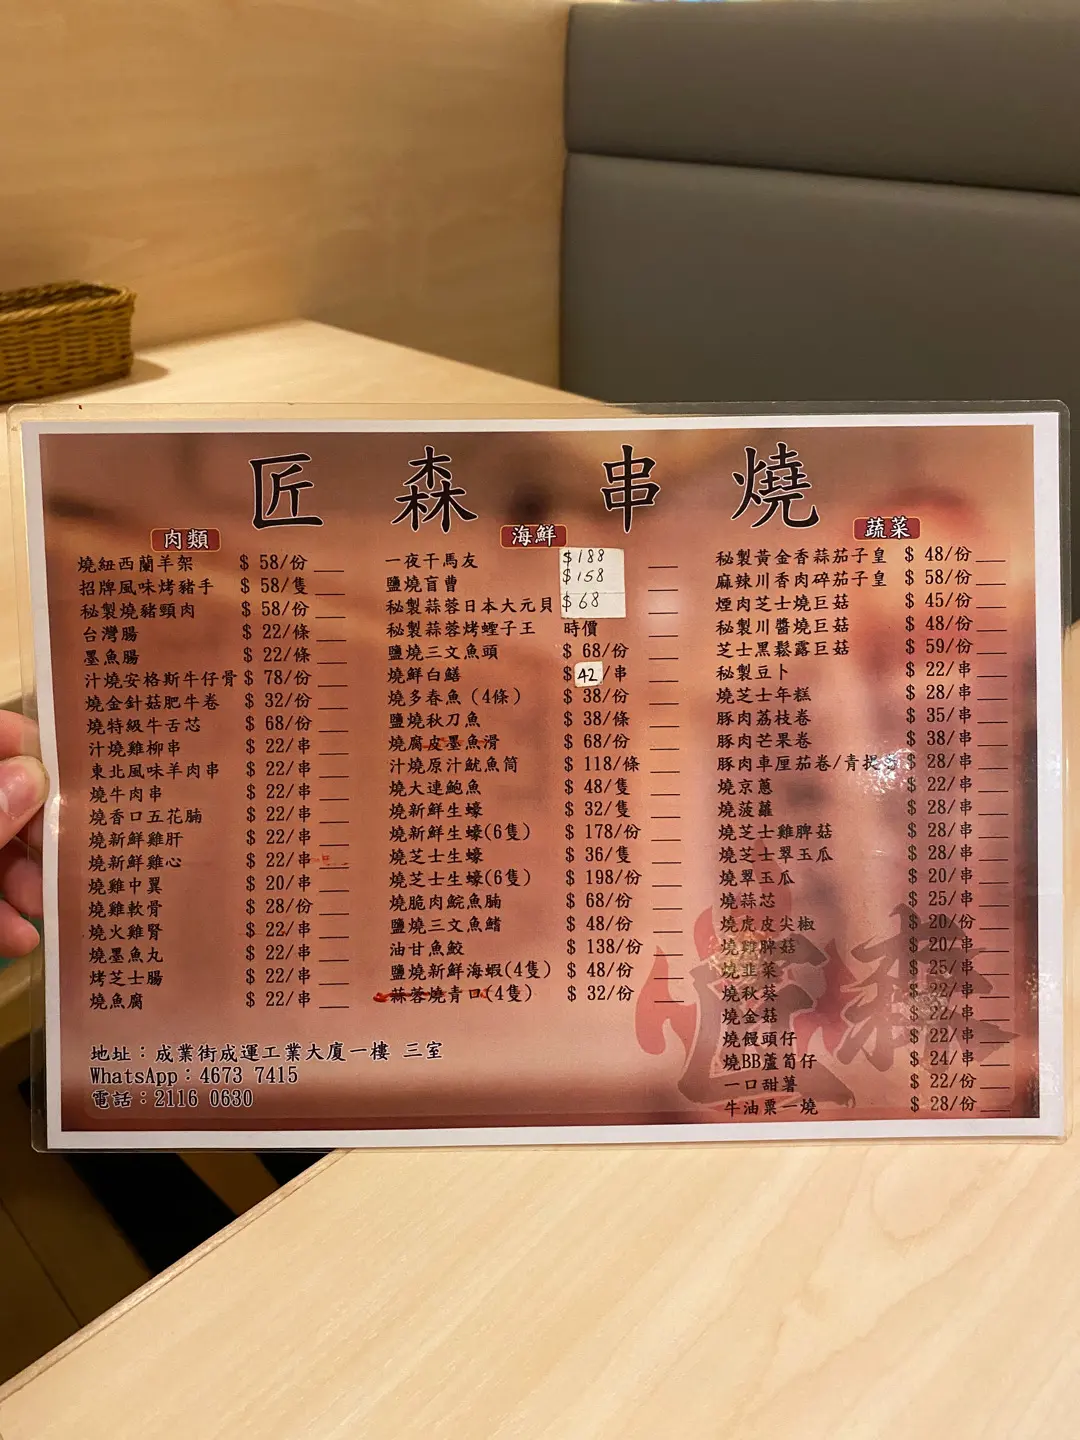 匠森串燒
肉類
燒紐西蘭羊架 $ 58/份
招牌風味烤豬手 $ 58/隻
秘製燒豬頸肉 $ 58/份
台灣腸 $ 22/條
墨魚腸 $ 22/條
汁燒安格斯牛仔骨 $ 78/份
燒金針菇肥牛卷 $ 32/份
燒特級牛舌芯 $ 68/份
汁燒雞柳串 $ 22/串
東北風味羊肉串 $ 22/串
燒牛肉串 $ 22/串
燒香口五花腩 $ 22/串
燒新鮮雞肝 $ 22/串
燒新鮮雞心 $ 22/串
燒雞中翼 $ 20/串
燒雞軟骨 $ 28/份
燒火雞腎 $ 22/串
燒墨魚丸 $ 22/串
烤芝士腸 $ 22/串
燒魚腐 $ 22/串
海鮮
一夜干馬友 $188
鹽燒盲曹 $158
秘製蒜蓉日本大元貝 $68
秘製蒜蓉烤蟶子王 時價
鹽燒三文魚頭 $ 68/份
燒鮮白鱔 $42/串
燒多春魚(4條) $ 38/份
鹽燒秋刀魚 $ 38/條
燒腐皮墨魚滑 $ 68/份
汁燒原汁魷魚筒 $ 118/條
燒大連鮑魚 $ 48/隻
燒新鮮生蠔 $ 32/隻
燒新鮮生蠔(6隻) $ 178/份
燒芝士生蠔 $ 36/隻
燒芝士生蠔(6隻) $ 198/份
燒脆肉鯇魚腩 $ 68/份
鹽燒三文魚鰭 $ 48/份
油甘魚鮫 $ 138/份
鹽燒新鮮海蝦(4隻) $ 48/份
蒜蓉燒青口(4隻) $ 32/份
蔬菜
秘製黃金香蒜茄子皇 $ 48/份
麻辣川香肉碎茄子皇 $ 58/份
煙肉芝士燒巨菇 $ 45/份
秘製川醬燒巨菇 $ 48/份
芝士黑鬆露巨菇 $ 59/份
秘製豆卜 $ 22/串
燒芝士年糕 $ 28/串
豚肉荔枝卷 $ 35/串
豚肉芒果卷 $ 38/串
豚肉車厘茄卷/青提 $ 28/串
燒京蔥 $ 22/串
燒菠蘿 $ 28/串
燒芝士雞脾菇 $ 28/串
燒芝士翠玉瓜 $ 28/串
燒翠玉瓜 $ 20/串
燒蒜芯 $ 25/串
燒虎皮尖椒 $ 20/份
燒雞脾菇 $ 20/串
燒韭菜 $ 25/串
燒秋葵 $ 22/串
燒金菇 $ 22/串
燒饅頭仔 $ 22/串
燒BB蘆筍仔 $ 24/串
一口甜薯 $ 22/份
牛油粟一燒 $ 28/份
地址：成業街成運工業大廈一樓 三室
WhatsApp：4673 7415
電話：2116 0630
匠森